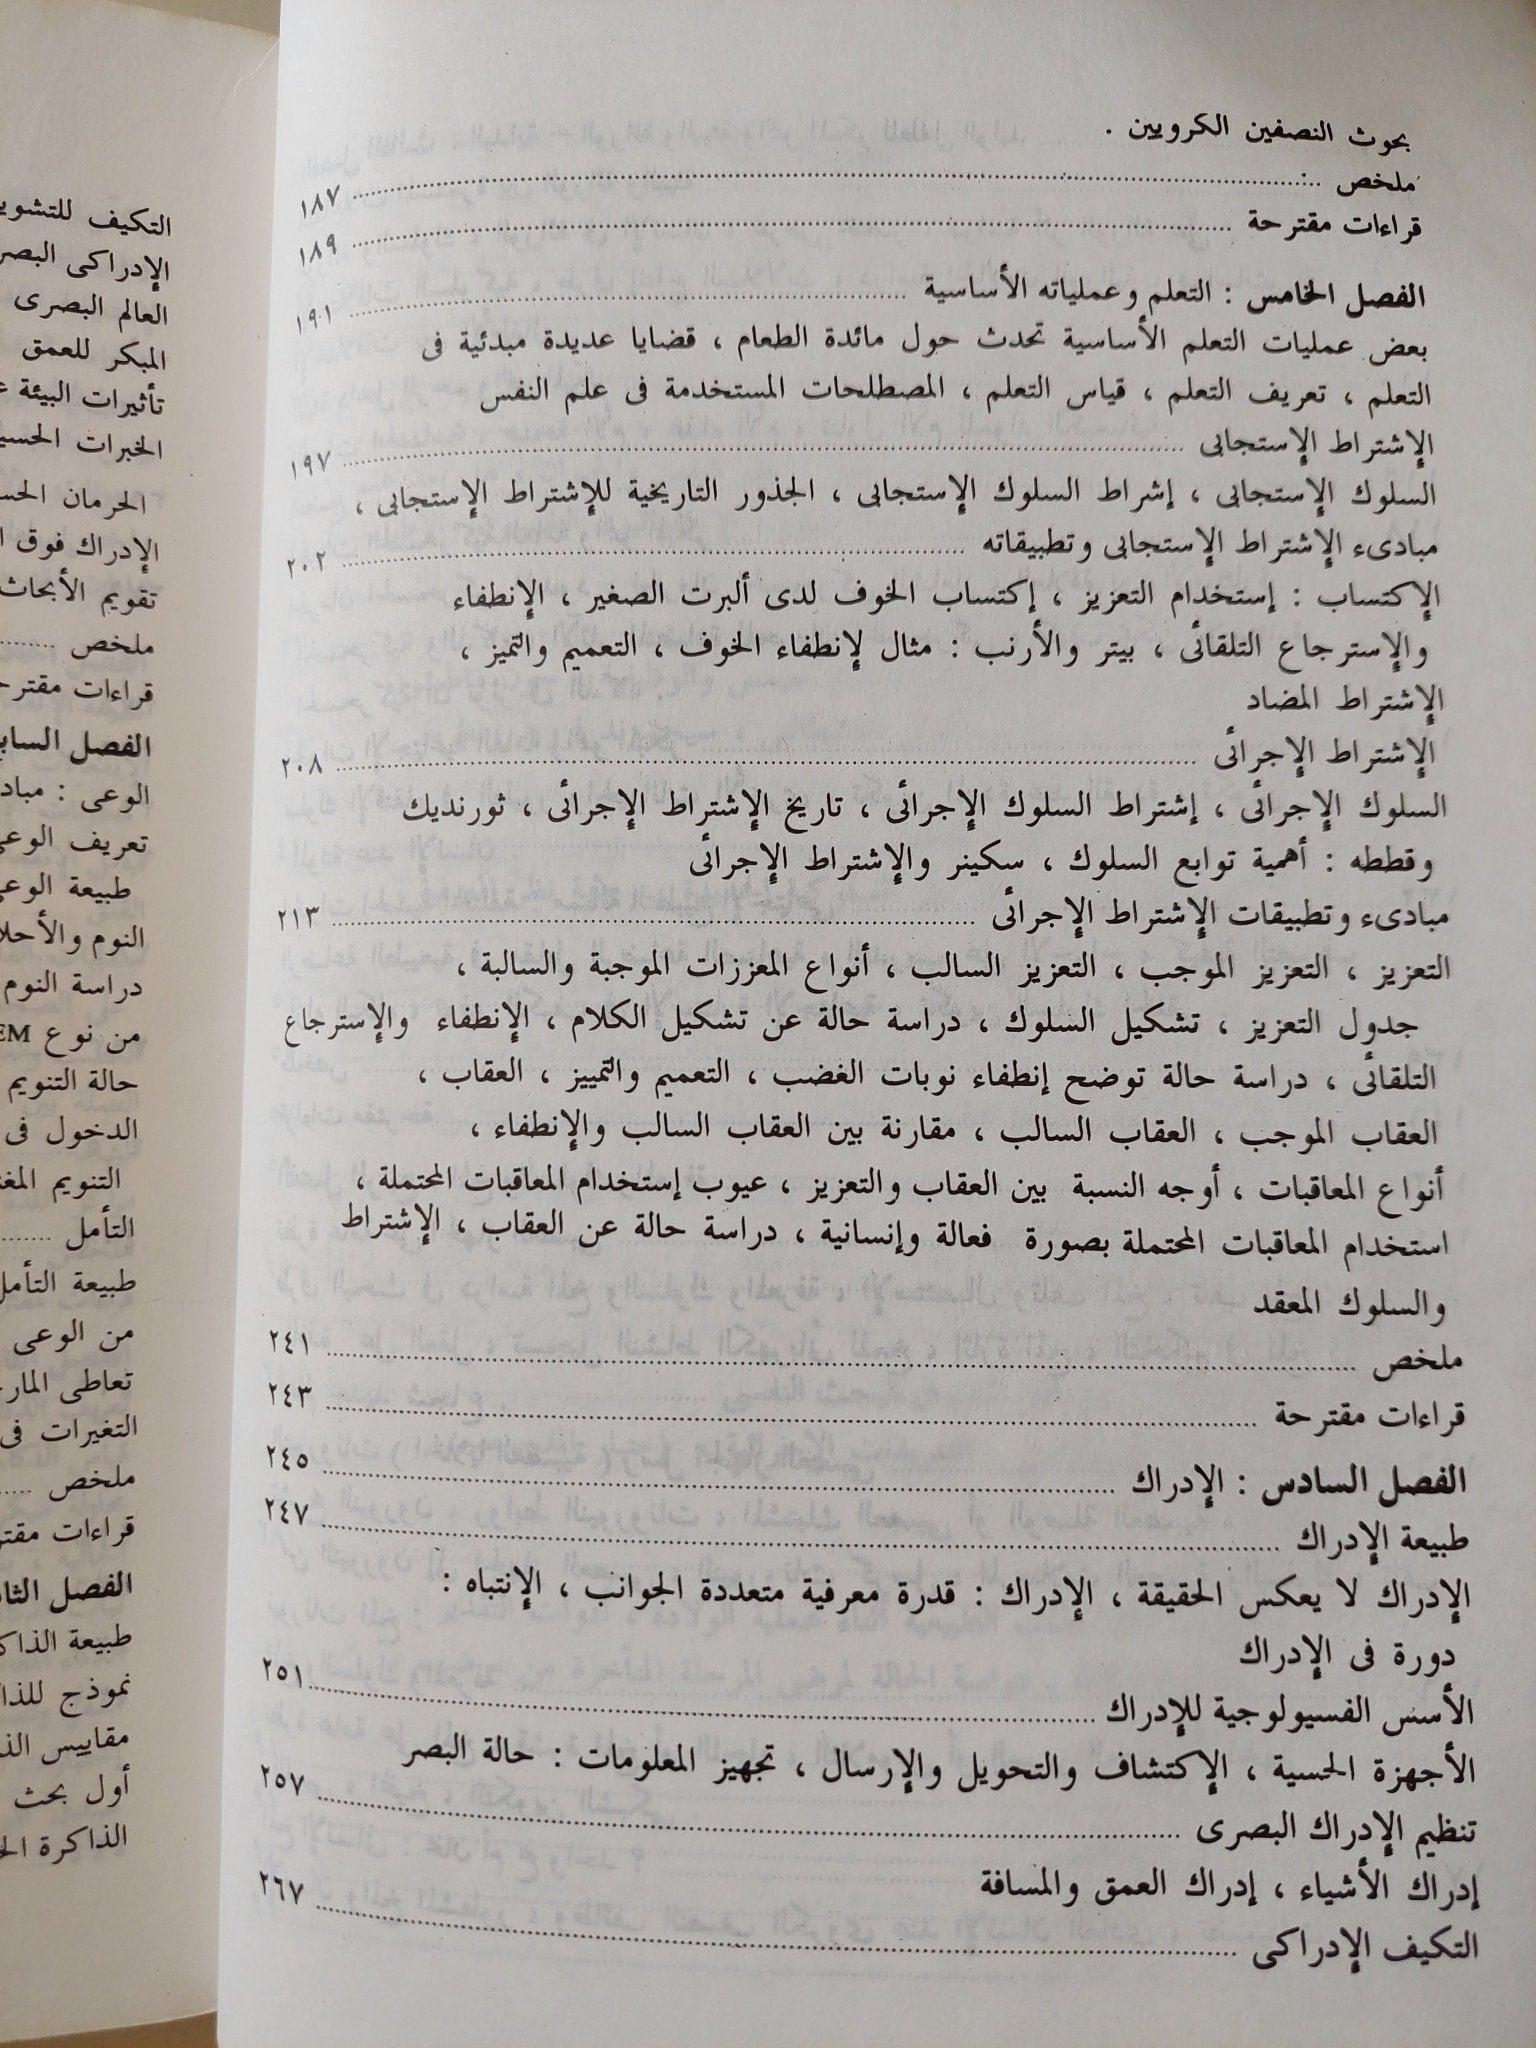 بحوث النصفين الكرويين .
ملخص ........ ١٨٧
قراءات مقترحة ........ ١٨٩
الفصل الخامس : التعلم وعملياته الأساسية ........ ١٩١
بعض عمليات التعلم الأساسية تحدث حول مائدة الطعام ، قضايا عديدة مبدئية فى
التعلم ، تعريف التعلم ، قياس التعلم ، المصطلحات المستخدمة فى علم النفس
الإشتراط الإستجابى ........ ١٩٧
السلوك الإستجابى ، إشراط السلوك الإستجابى ، الجذور التاريخية للإشتراط الإستجابى ،
مبادىء الإشتراط الإستجابى وتطبيقاته ........ ٢٠٢
الإكتساب : إستخدام التعزيز ، إكتساب الخوف لدى ألبرت الصغير ، الإنطفاء
والإسترجاع التلقائى ، بيتر والأرنب : مثال لإنطفاء الخوف ، التعميم والتميز ،
الإشتراط المضاد
الإشتراط الإجرائى ........ ٢٠٨
السلوك الإجرائى ، إشتراط السلوك الإجرائى ، تاريخ الإشتراط الإجرائى ، ثورنديك
وقططه : أهمية توابع السلوك ، سكينر والإشتراط الإجرائى
مبادىء وتطبيقات الإشتراط الإجرائى ........ ٢١٣
التعزيز ، التعزيز الموجب ، التعزيز السالب ، أنواع المعززات الموجبة والسالبة ،
جدول التعزيز ، تشكيل السلوك ، دراسة حالة عن تشكيل الكلام ، الإنطفاء والإسترجاع
التلقائى ، دراسة حالة توضح إنطفاء نوبات الغضب ، التعميم والتمييز ، العقاب ،
العقاب الموجب ، العقاب السالب ، مقارنة بين العقاب السالب والإنطفاء ،
أنواع المعاقبات ، أوجه النسبة بين العقاب والتعزيز ، عيوب إستخدام المعاقبات المحتملة ،
استخدام المعاقبات المحتملة بصورة فعالة وإنسانية ، دراسة حالة عن العقاب ، الإشتراط
والسلوك المعقد
ملخص ........ ٢٤١
قراءات مقترحة ........ ٢٤٣
الفصل السادس : الإدراك ........ ٢٤٥
طبيعة الإدراك ........ ٢٤٧
الإدراك لا يعكس الحقيقة ، الإدراك : قدرة معرفية متعددة الجوانب ، الإنتباه :
دورة فى الإدراك
الأسس الفسيولوجية للإدراك ........ ٢٥١
الأجهزة الحسية ، الإكتشاف والتحويل والإرسال ، تجهيز المعلومات : حالة البصر
تنظيم الإدراك البصرى ........ ٢٥٧
إدراك الأشياء ، إدراك العمق والمسافة
التكيف الإدراكى ........ ٢٦٧
التكيف
الإدراكى
العالم البصرى
المبكر للعمق
تأثيرات البيئة
الخبرات
الحرمان
الإدراك فوق
تقويم الأبحاث
ملخص ........
قراءات
الفصل
الوعى :
تعريف
طبيعة
النوم
دراسة النوم
من نوع
حالة التنويم
الدخول فى
التنويم
التأمل ........
طبيعة
من الوعى
تعاطى
التغيرات فى
ملخص ........
قراءات
الفصل
طبيعة
نموذج
مقاييس
أول بحث
الذاكرة